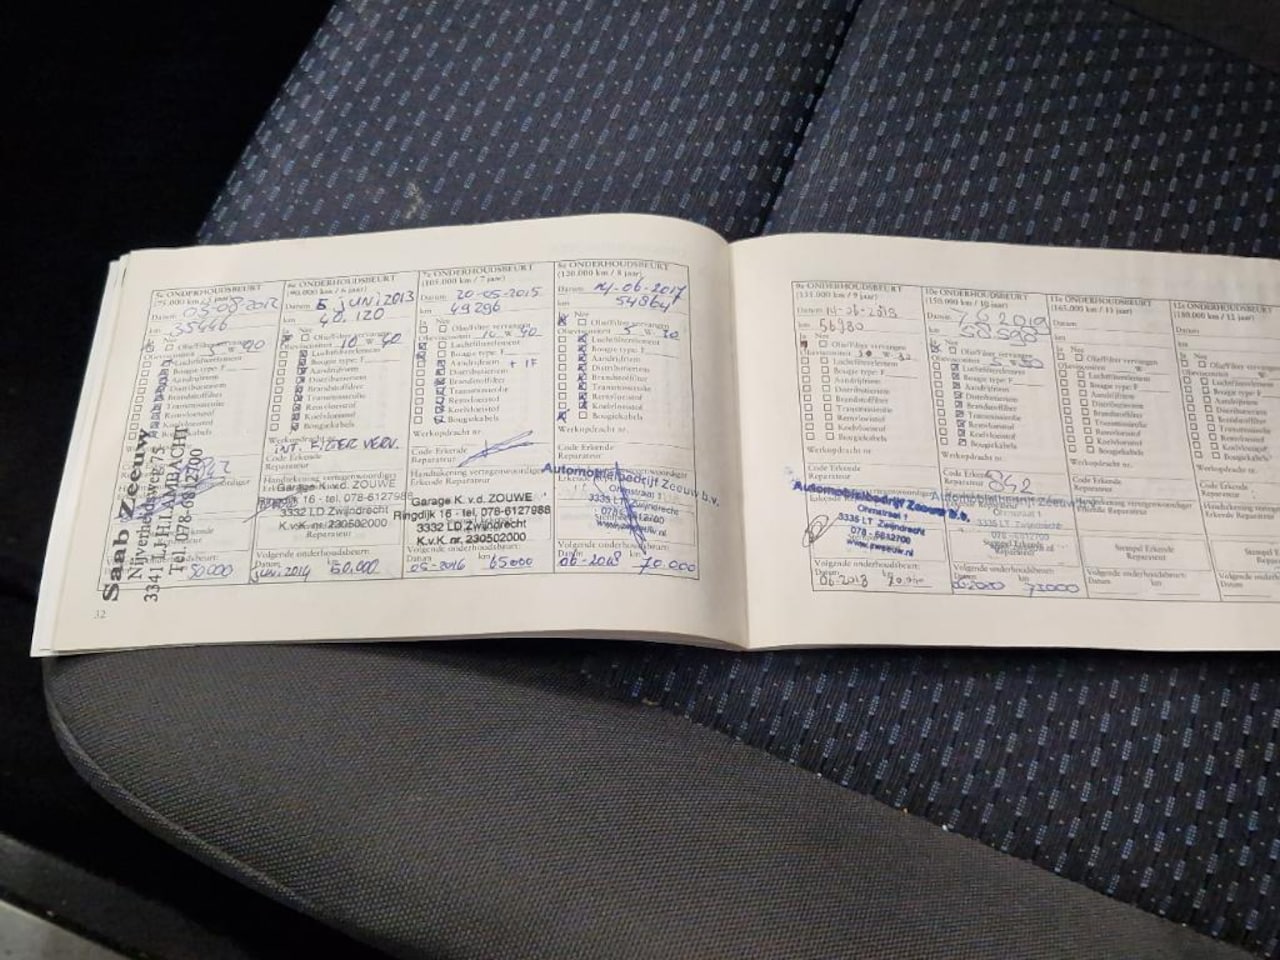 5e ONDERHOUDSBEURT
(75.000 km / 5 jaar)
Datum 03-08-2012
km 35446
Ja Nee
Olie/Filter vervangen
Luchtfilterelement
Aandrijfriem
Distributieriem
Brandstoffilter
Transmissieolie
Remvloeistof
Koelvloeistof
Bougiekabels
Saab Zeeuw
Nijverheidsweg 75
3341 LJ H.I. AMBACHT
Tel. 078-6812700
50000
32
6e ONDERHOUDSBEURT
(90.000 km / 6 jaar)
Datum 5 juni 2013
km 40.120
Ja Nee
Olie/Filter vervangen
Olieviscositeit 10 W 40
Luchtfilterelement
Bougie type: F
Aandrijfriem
Distributieriem
Brandstoffilter
Transmissieolie
Remvloeistof
Koelvloeistof
Bougiekabels
Werkopdracht nr.
INT. FILTER VERV.
Code Erkende
Reparateur
Garage K.v.d. ZOUWE
Ringdijk 16 - tel. 078-6127988
3332 LD Zwijndrecht
K.v.K. nr. 230502000
Volgende onderhoudsbeurt:
Datum km
juni 2014 60.000
7e ONDERHOUDSBEURT
(105.000 km / 7 jaar)
Datum 20-05-2015
km 49296
Ja Nee
Olie/Filter vervangen
Olieviscositeit 10 W 40
Luchtfilterelement
Bougie type: F
Aandrijfriem + IF
Distributieriem
Brandstoffilter
Transmissieolie
Remvloeistof
Koelvloeistof
Bougiekabels
Werkopdracht nr.
Code Erkende
Reparateur
Handtekening vertegenwoordiger
Erkende Reparateur
Garage K. v.d. ZOUWE
Ringdijk 16 - tel. 078-6127988
3332 LD Zwijndrecht
K.v.K. nr. 230502000
Volgende onderhoudsbeurt:
Datum km
05-2016 65000
8e ONDERHOUDSBEURT
(120.000 km / 8 jaar)
Datum 14-06-2017
km 54864
Ja Nee
Olie/Filter vervangen
Olieviscositeit 5 W 30
Luchtfilterelement
Bougie type: F
Aandrijfriem
Distributieriem
Brandstoffilter
Transmissieolie
Remvloeistof
Koelvloeistof
Bougiekabels
Werkopdracht nr.
Code Erkende
Reparateur
Automobielbedrijf Zeeuw b.v.
Ohmstraat 1
3335 LT Zwijndrecht
078 - 6812700
www.zeeuw.nl
Volgende onderhoudsbeurt:
Datum km
06-2018 70.000
9e ONDERHOUDSBEURT
(135.000 km / 9 jaar)
Datum
km 56980
Ja Nee
Olie/Filter vervangen
Olieviscositeit W
Luchtfilterelement
Bougie type: F
Aandrijfriem
Distributieriem
Brandstoffilter
Transmissieolie
Remvloeistof
Koelvloeistof
Bougiekabels
Werkopdracht nr.
Code Erkende
Reparateur
Automobielbedrijf Zeeuw b.v.
Ohmstraat 1
3335 LT Zwijndrecht
078 - 6812700
www.zeeuw.nl
Volgende onderhoudsbeurt:
Datum km
10e ONDERHOUDSBEURT
(150.000 km / 10 jaar)
Datum 7 6 2019
km 58598
Ja Nee
Olie/Filter vervangen
Luchtfilterelement
Bougie type: F
Aandrijfriem
Distributieriem
Brandstoffilter
Transmissieolie
Remvloeistof
Koelvloeistof
Bougiekabels
Werkopdracht nr.
Code Erkende
Reparateur 842
Automobielbedrijf Zeeuw
Ohmstraat 1
3335 LT Zwijndrecht
078 - 6812700
Volgende onderhoudsbeurt:
Datum km
06-2020 73000
11e ONDERHOUDSBEURT
(165.000 km / 11 jaar)
Datum
km
Ja Nee
Olie/Filter vervangen
Olieviscositeit W
Luchtfilterelement
Bougie type: F
Aandrijfriem
Distributieriem
Brandstoffilter
Transmissieolie
Remvloeistof
Koelvloeistof
Bougiekabels
Werkopdracht nr.
Code Erkende
Reparateur
Handtekening vertegenwoordiger
Erkende Reparateur
Stempel Erkende
Reparateur
Volgende onderhoudsbeurt:
Datum km
12e ONDERHOUDSBEURT
(180.000 km / 12 jaar)
Datum
km
Ja Nee
Luchtfilterelement
Bougie type: F
Aandrijfriem
Distributieriem
Brandstoffilter
Transmissieolie
Remvloeistof
Koelvloeistof
Bougiekabels
Werkopdracht nr.
Code Erkende
Reparateur
Erkende Reparateur
Datum